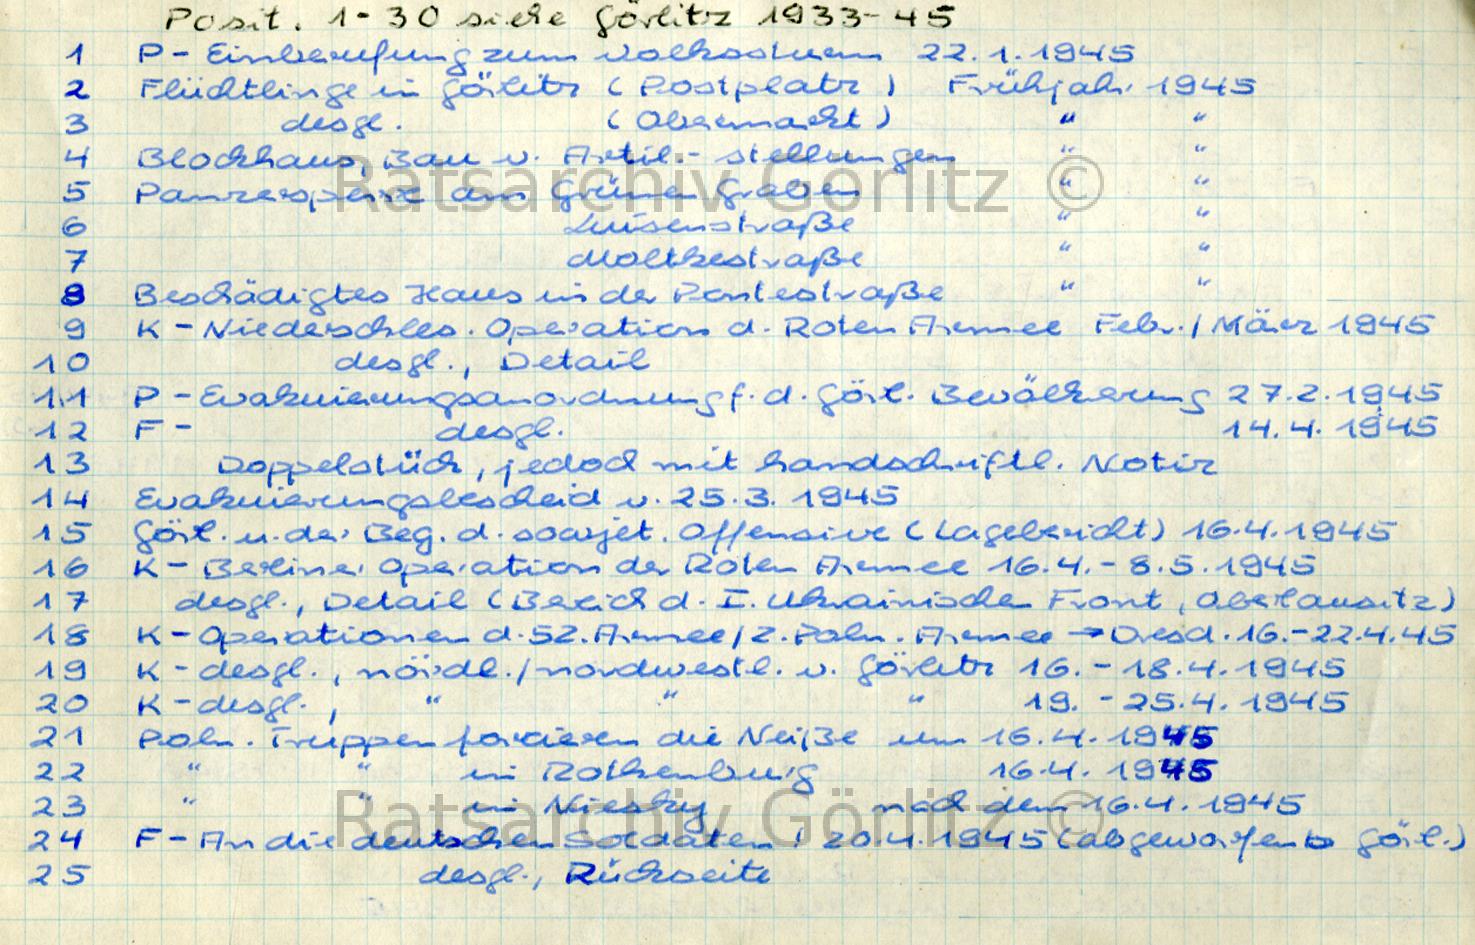 Posit. 1-30 siehe Görlitz 1933-45
1 P - Einberufung zum Volkssturm 22.1.1945
2 Flüchtlinge in Görlitz (Postplatz) Frühjahr 1945
3 desgl. (Obermarkt) " "
4 Blockhaus, Bau v. Artil.-stellungen " "
5 Panzersperre am Grünen Graben " "
6 Luisenstraße " "
7 Moltkestraße " "
8 Beschädigtes Haus in der Pontestraße " "
9 K - Niederschles. Operation d. Roten Armee Febr./März 1945
10 desgl., Detail
11 P - Evakuierungsanordnung f. d. Görl. Bevölkerung 27.2.1945
12 F - desgl. 14.4.1945
13 Doppelstück, jedoch mit handschriftl. Notiz
14 Evakuierungsbescheid v. 25.3.1945
15 Görl. u. der Beg. d. sowjet. Offensive (Lagebericht) 16.4.1945
16 K - Berliner Operation der Roten Armee 16.4.-8.5.1945
17 desgl., Detail (Bereich d. I. Ukrainischen Front, Oberlausitz)
18 K - Operationen d. 52. Armee/2. Poln. Armee → Dresd. 16.-22.4.45
19 K - desgl., nördl./nordwestl. v. Görlitz 16.-18.4.1945
20 K - desgl., " " " 19.-25.4.1945
21 Poln. Truppen forcieren die Neiße am 16.4.1945
22 " " in Rothenburg 16.4.1945
23 " " in Niesky nach dem 16.4.1945
24 F - An die deutschen Soldaten! 20.4.1945 (abgeworfen b Görl.)
25 desgl., Rückseite
Ratsarchiv Görlitz ©
Ratsarchiv Görlitz ©